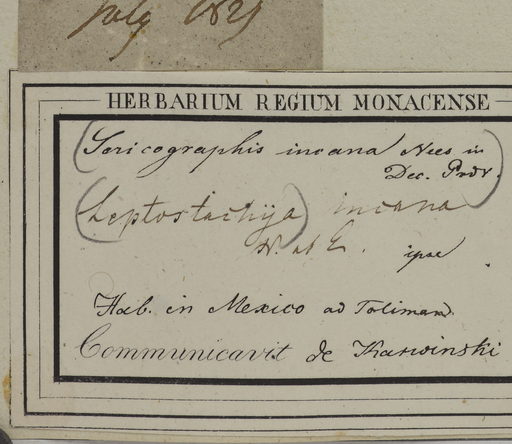 July 1829
HERBARIUM REGIUM MONACENSE
(Sericographis incana Nees in
Dec. Prdr.)
(Leptostachya) incana
N. ab E. ipse
Hab. in Mexico ad Toliman.
Communicavit de Karwinski